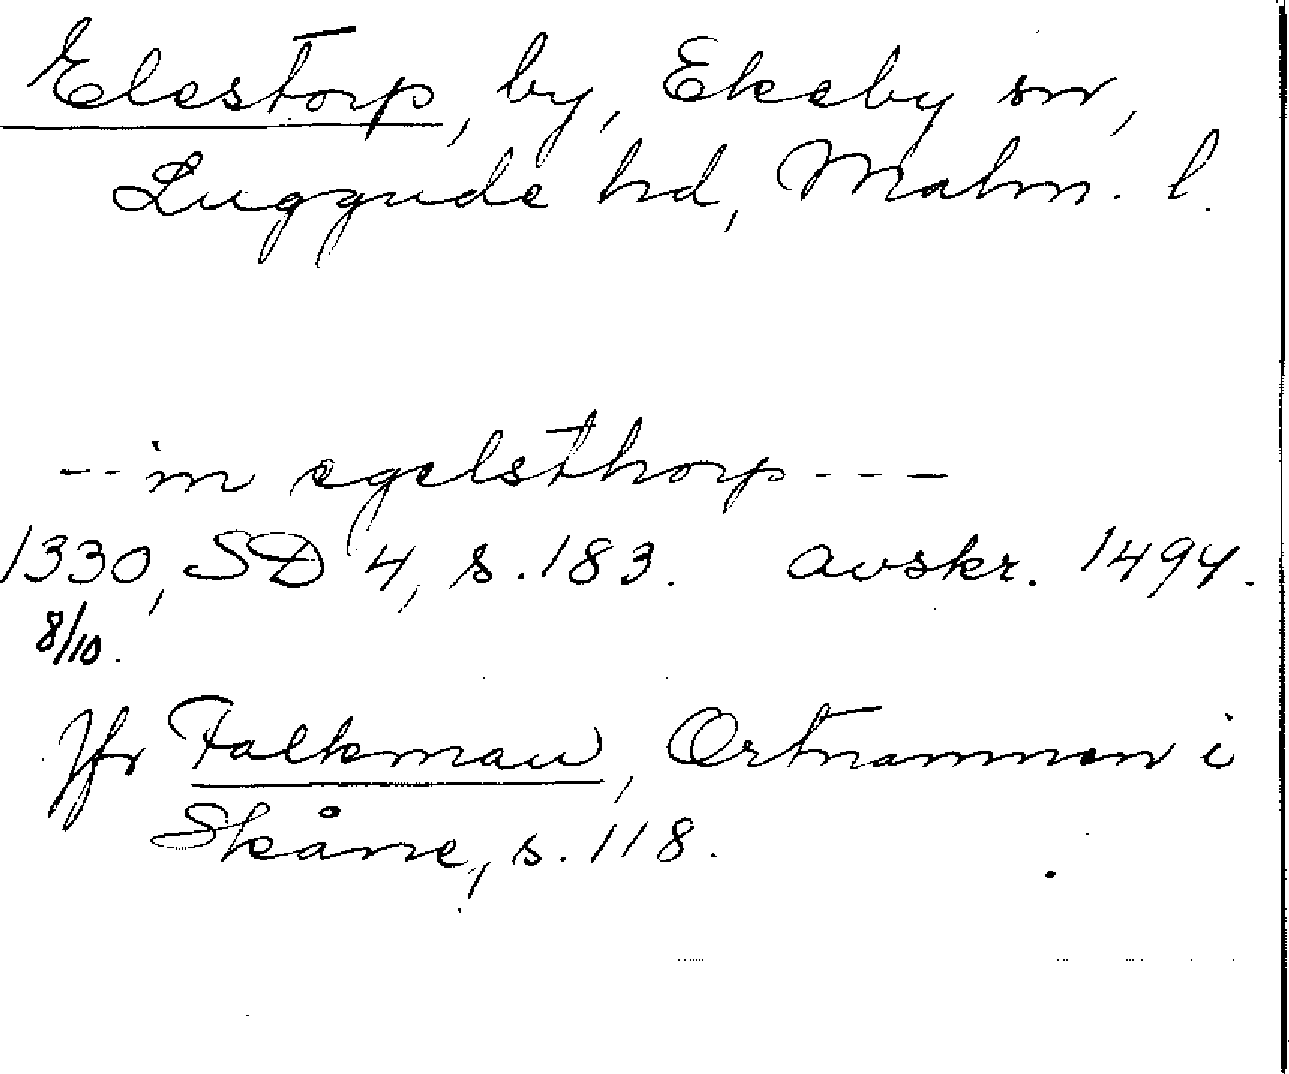 Elestorp, by, Ekeby sn,
Luggude hd, Malm. l.
-- in egelsthorp ---
1330, SD 4, s. 183. avskr. 1494.
8/10.
Jfr Falkman, Ortnamnen i
Skåne, s. 118.